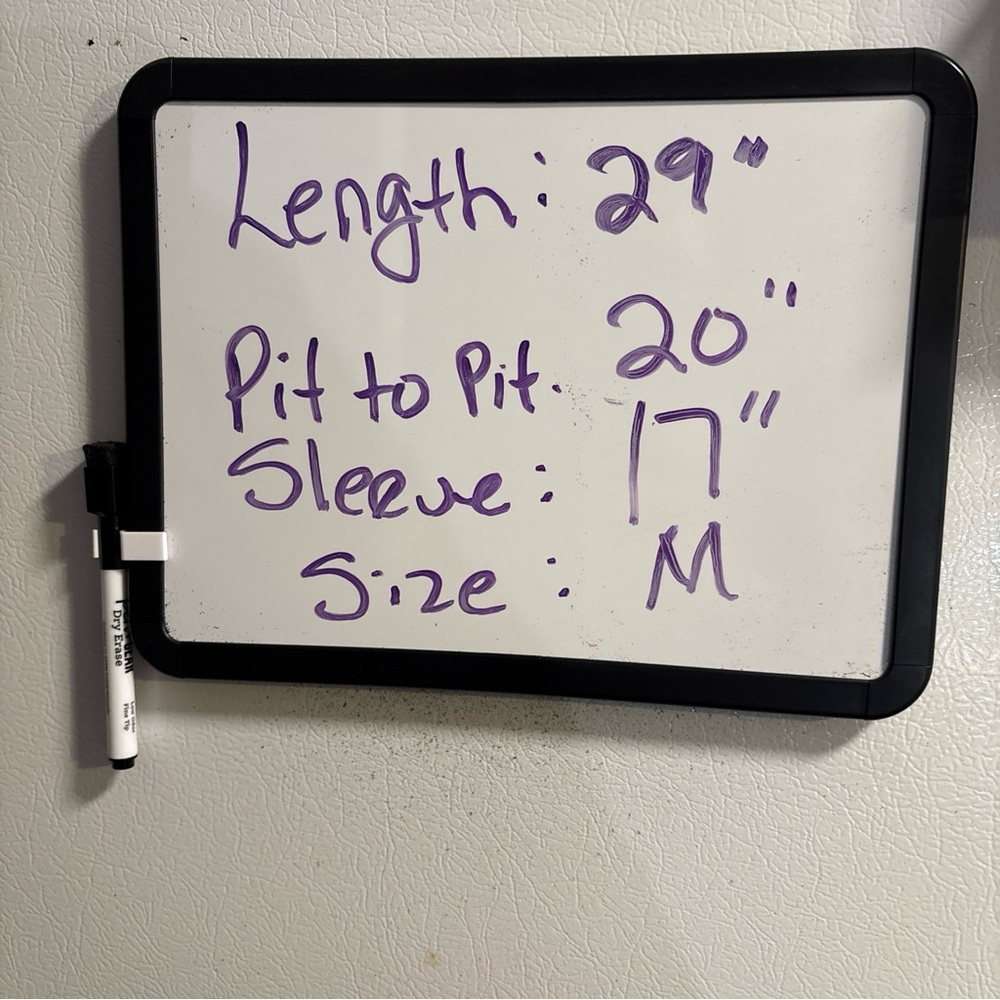 Length: 29"
Pit to Pit. 20"
Sleeve: 17"
Size: M
Dry Erase
Fine Tip